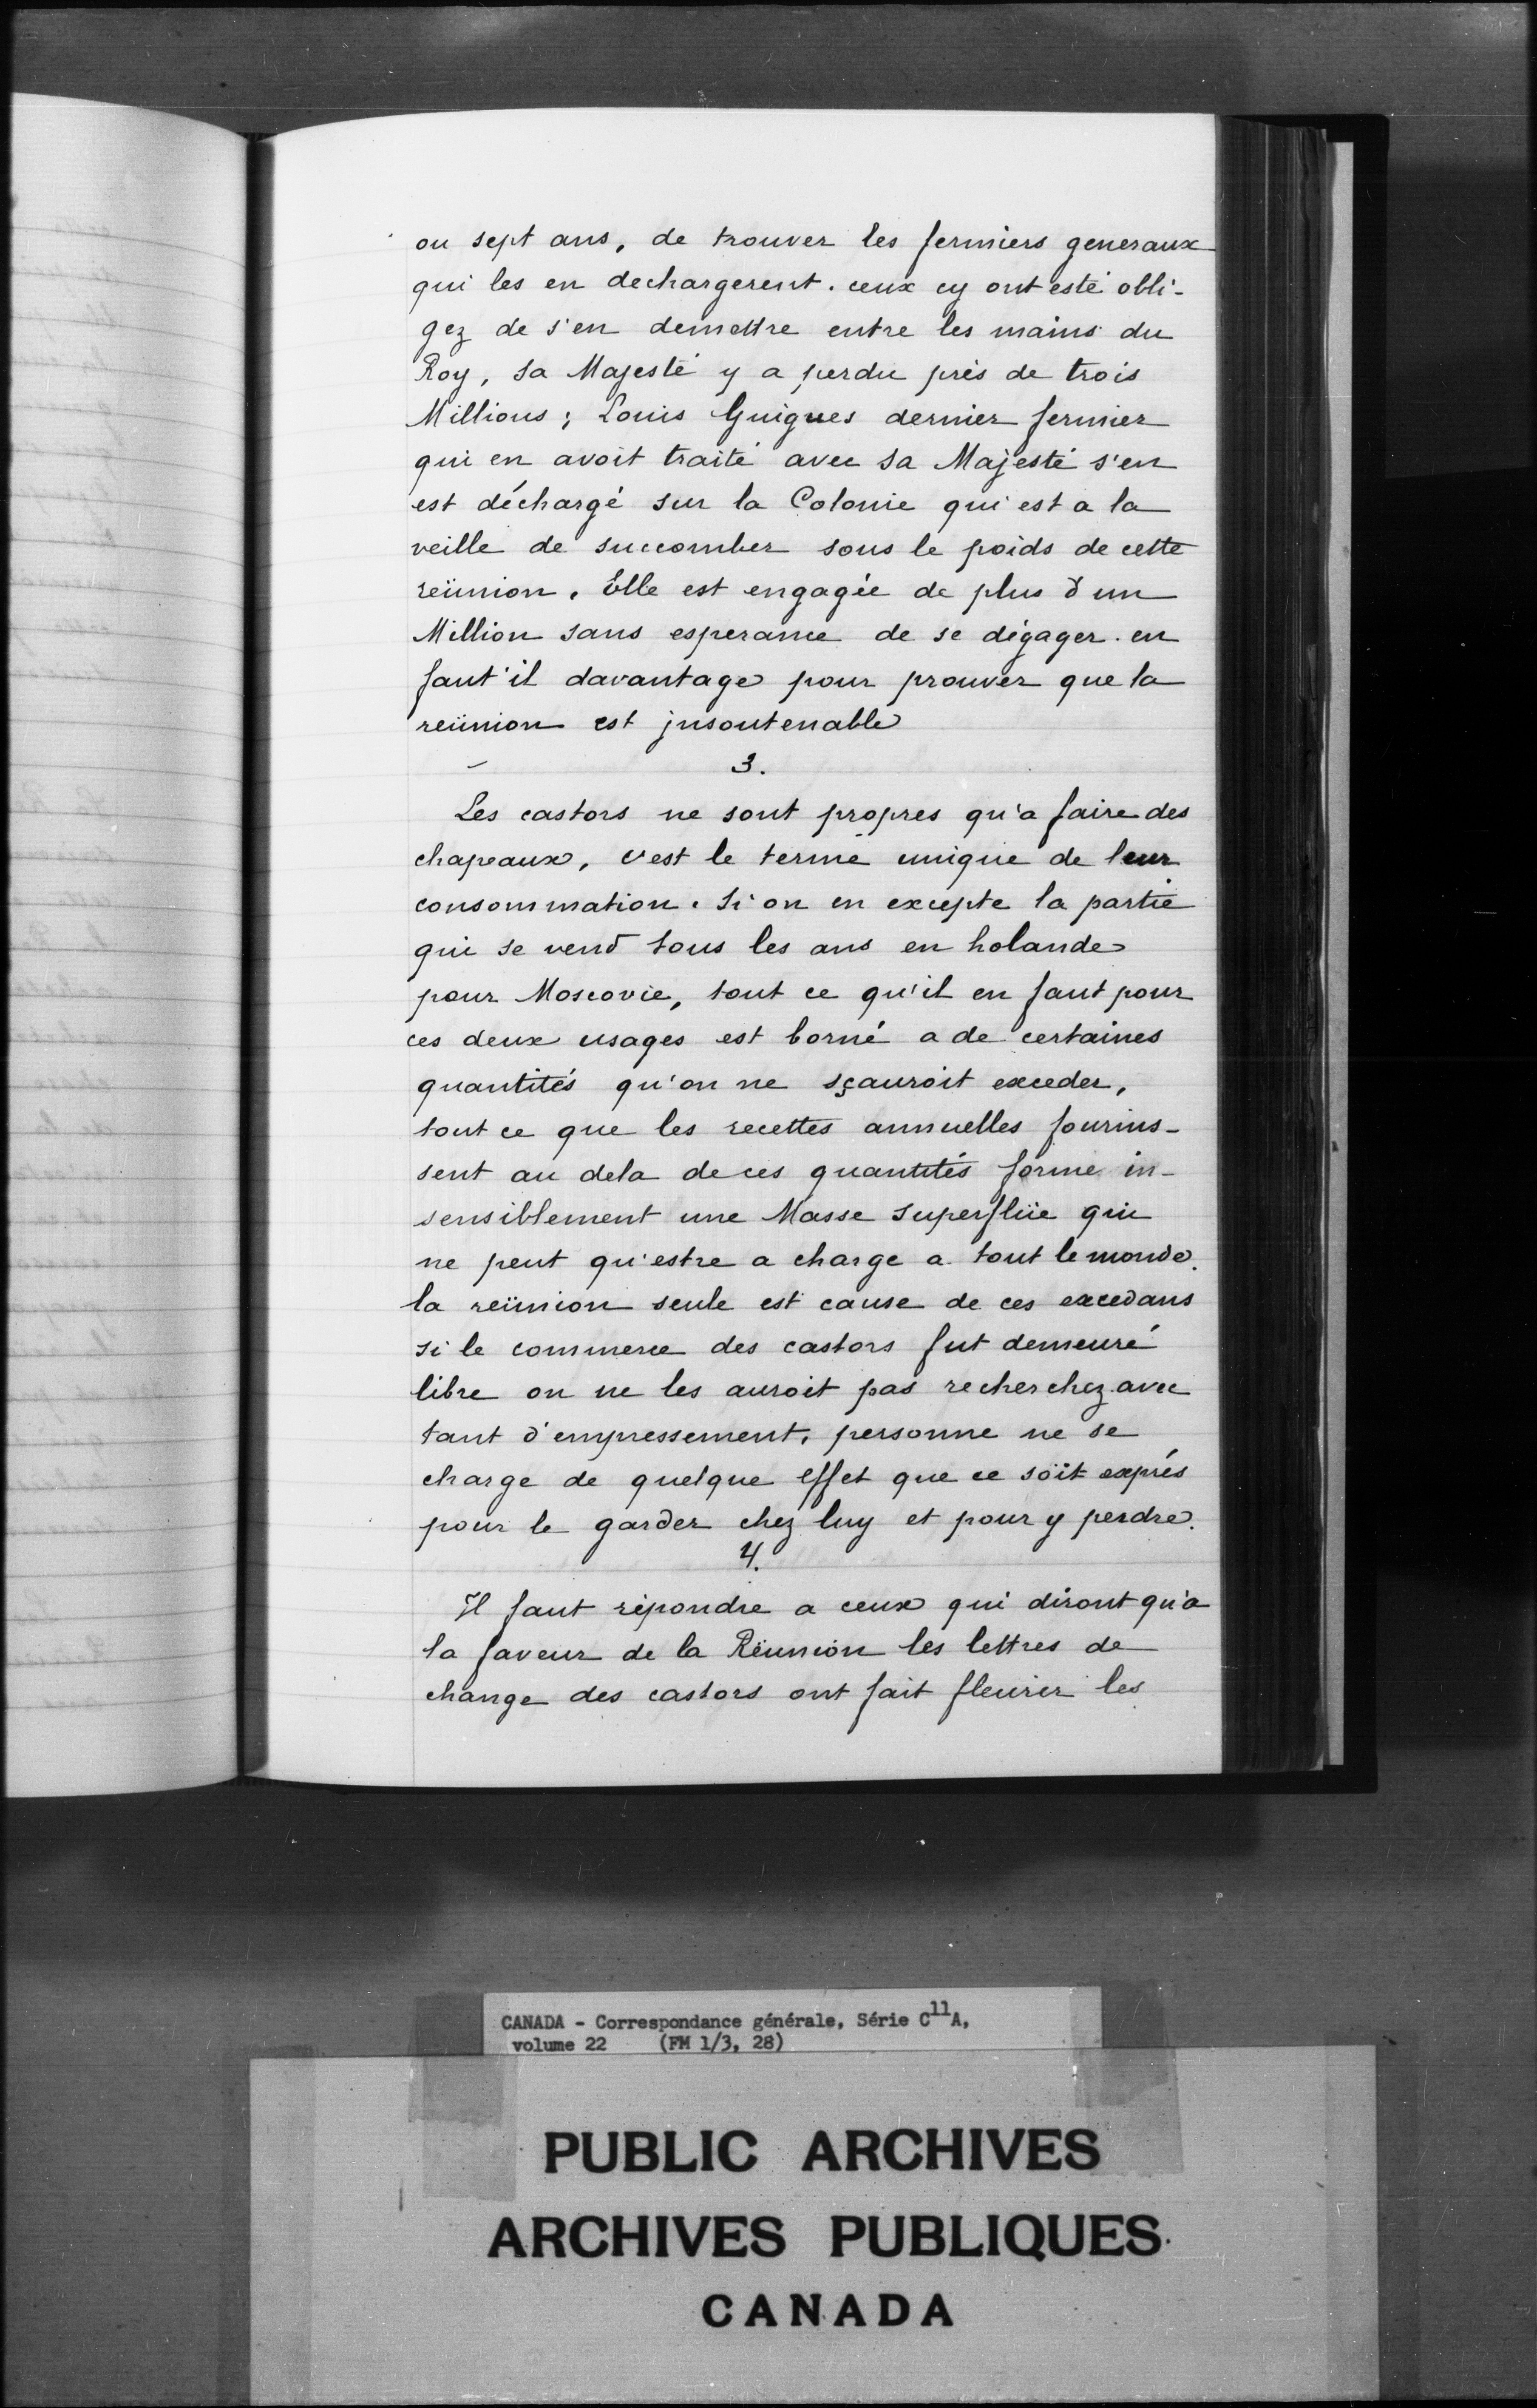 ou sept ans, de trouver les fermiers generaux
qui les en dechargerent. ceux cy ont esté obli-
gez de s'en demettre entre les mains du
Roy, sa Majesté y a perdu près de trois
Millions; Louis Guigues dernier fermier
qui en avoit traité avec sa Majesté s'en
est déchargé sur la Colonie qui est a la
veille de succomber sous le poids de cette
reünion. Elle est engagée de plus d'un
Million sans esperance de se dégager. en
faut'il davantage pour prouver que la
reünion est jnsoutenable
3.
Les castors ne sont propres qu'a faire des
chapeaux, c'est le terme unique de leur
consommation. Si on en excepte la partie
qui se vend tous les ans en holande
pour Moscovie, tout ce qu'il en faut pour
ces deux usages est borné a de certaines
quantités qu'on ne sçauroit exceder,
tout ce que les recettes annuelles fournis-
sent au dela de ces quantités forme in-
sensiblement une Masse superflüe qui
ne peut qu'estre a charge a tout le monde.
la reünion seule est cause de ces excedans
si le commerce des castors fut demeuré
libre on ne les auroit pas recherchez avec
tant d'empressement, personne ne se
charge de quelque effet que ce soit exprés
pour le garder chez luy et pour y perdre.
4.
Il faut répondre a ceux qui diront qu'a
la faveur de la Réunion les lettres de
change des castors ont fait fleurir les
CANADA - Correspondance générale, Série C11A,
volume 22 (FM 1/3, 28)
PUBLIC ARCHIVES
ARCHIVES PUBLIQUES
CANADA